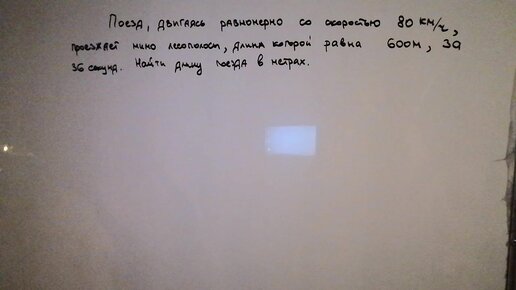 Поезд, двигаясь равномерно со скоростью 80 км/ч,
проезжает мимо лесополосы, длина которой равна 600м, за
36 секунд. Найти длину поезда в метрах.